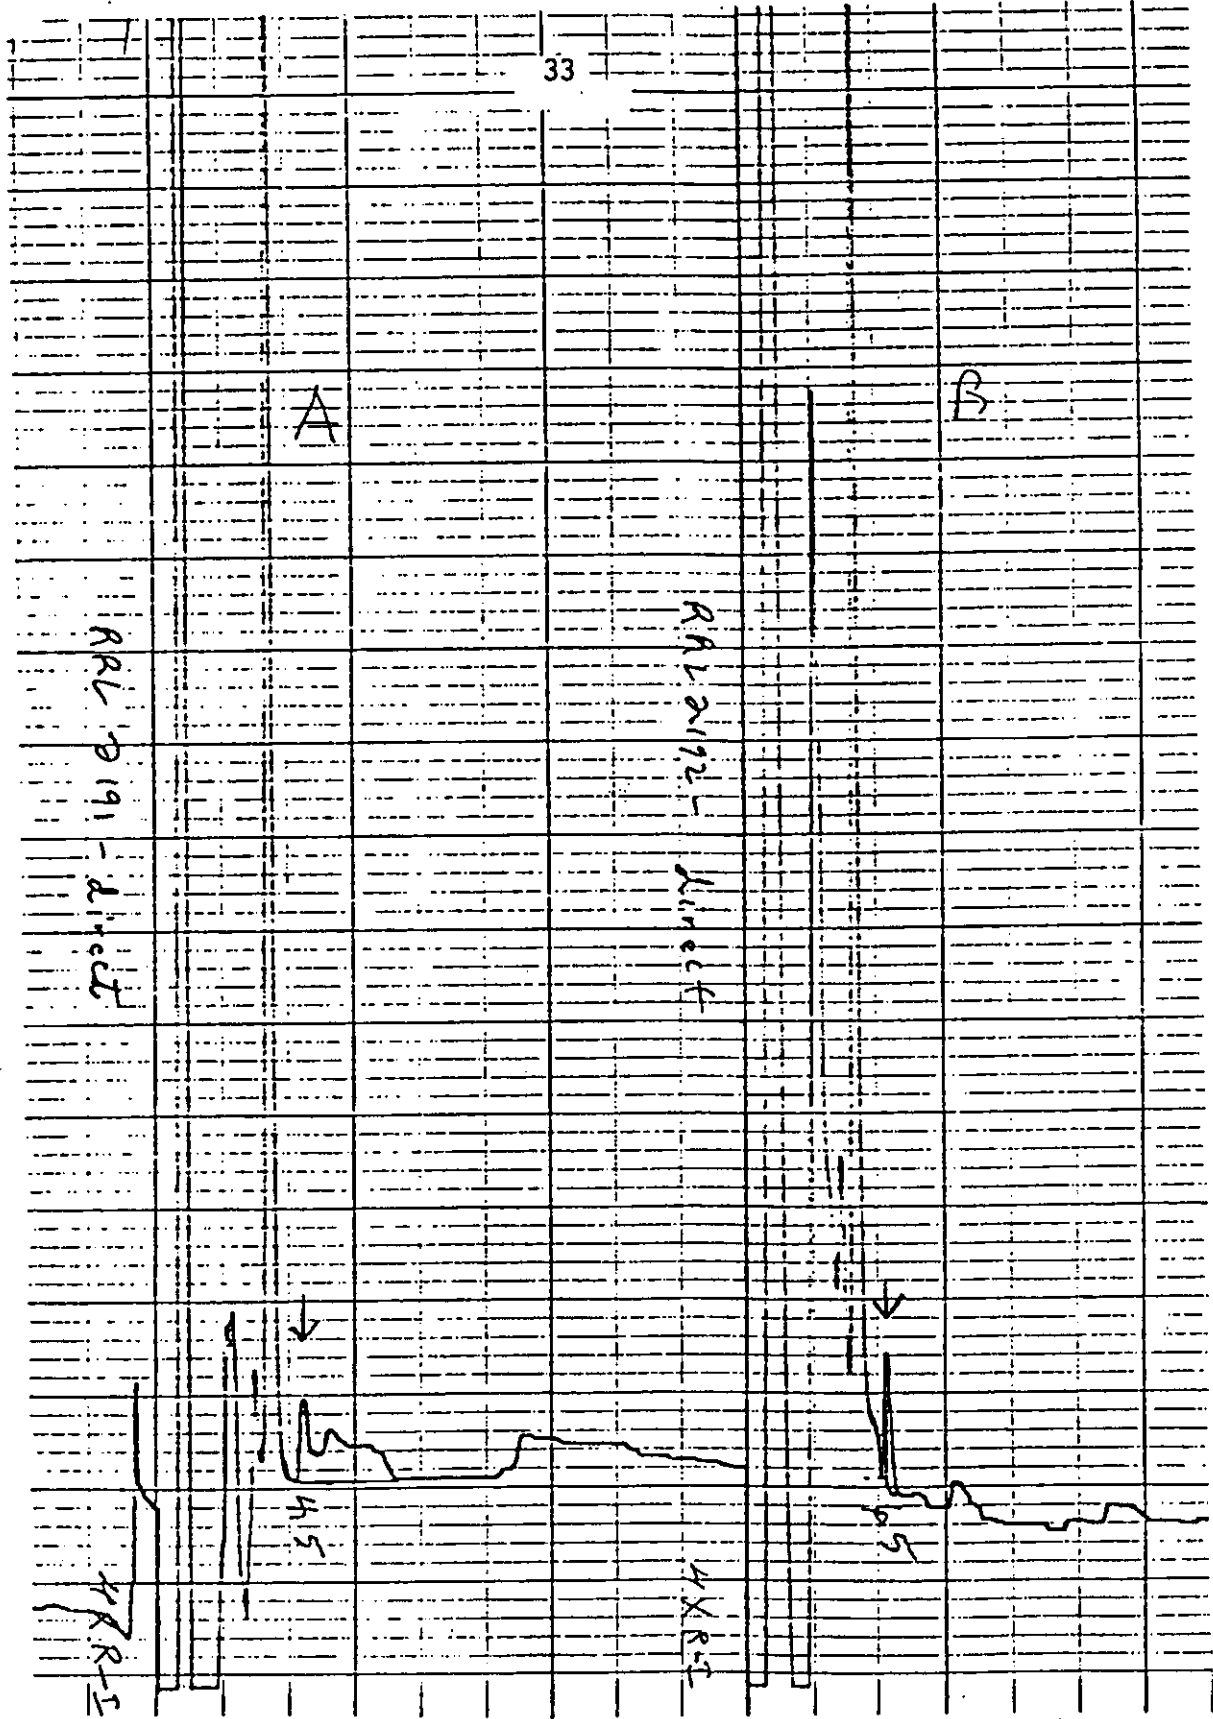 33
A
B
RRL 2191 - direct
RRL 2192 - direct
4XR-I
4XR-I